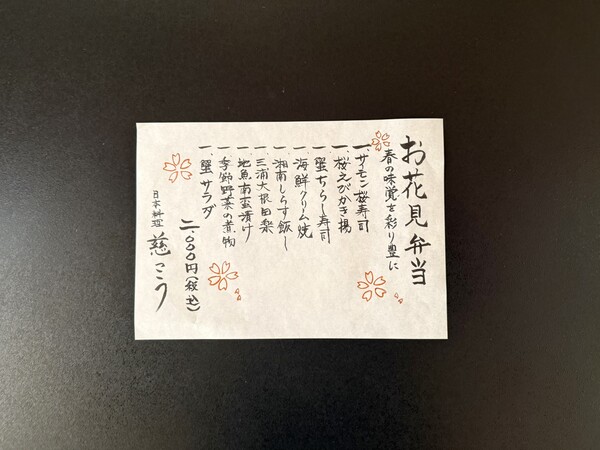 お花見弁当
春の味覚を彩り豊に
一、サイモン桜寿司
一、桜えびかき揚
一、蟹ちらし寿司
一、海鮮クリーム焼
一、湘南しらす飯し
一、三浦大根田楽
一、地魚南蛮漬け
一、季節野菜の煮物
一、蟹サラダ
二、000円(税込)
日本料理 慈こう